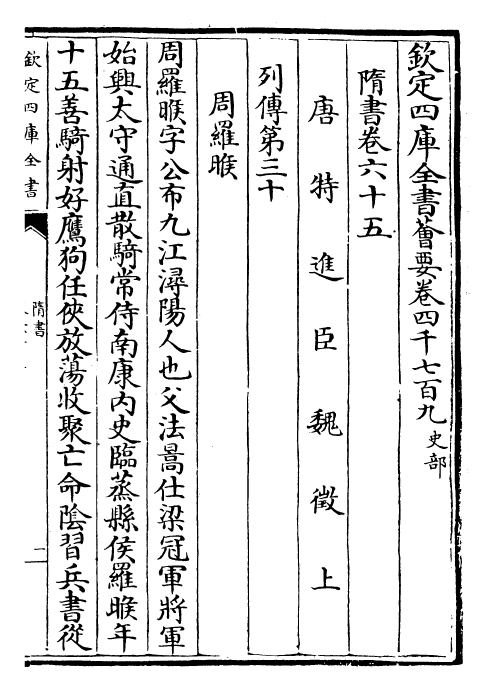 欽定四庫全書薈要卷四千七百九史部
隋書卷六十五
唐特進臣魏徵上
列傳第三十
周羅睺
周羅睺字公布九江潯陽人也父法暠仕梁冠軍將軍
始興太守通直散騎常侍南康内史臨蒸縣侯羅睺年
十五善騎射好鷹狗任俠放蕩收聚亡命陰習兵書從
欽定四庫全書
隋書
二